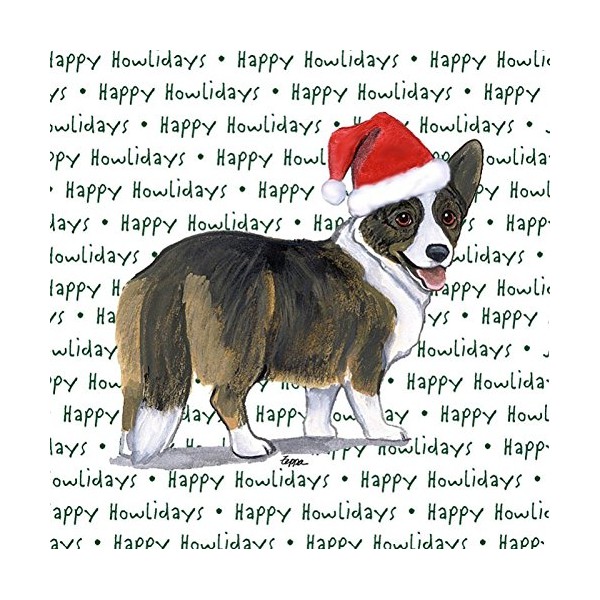 Happy Howlidays • Happy Howlidays • Happy Howli
ys • Happy Howlidays • Happy Howlidays • Happy
owlidays • Happy Howlidays •
Happy Howlidays • Happy
ys • Happy Howlidays • Happy Happy
days • Happy Howlidays •
Howlidays • Howli
Happy Happy Howl
ys • • Happy
wliday Howlidays •
Happy Happy Howlida
ys • Happy • Happy
days • Howlidays •
Howlidays • Happy Howlidays • Happy Howli
Happy Howlidays • Happy Howlidays • Happy Howli
ays • Happy Howlidays • Happy Howlidays • Happ
Zeppa